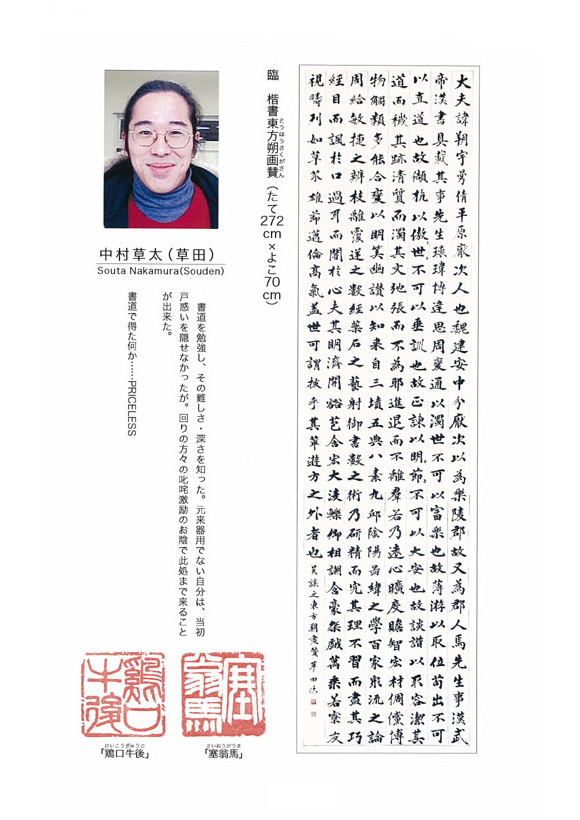 大夫諱朔字曼倩平原厭次人也魏建安中分厭次以為樂陵郡故又為郡人焉先生事漢武
帝漢書具載其事先生瓌瑋博達思周變通以濁世不可以富樂也故薄游以取位苟出不可
以直道也故頡抗以傲世不可以垂訓也故正諫以明節不可以久安也故談諧以取容潔其
道而穢其跡清質而濁其文弛張而不為耶進退而不離羣若乃遠心曠度贍智宏材倜儻博
物觸類多能合變以明筭幽讃以知来自三墳五典八素九邱陰陽圖緯之學百家衆流之論
周給敏捷之辨枝離覆逆之數經藥石之藝射御書數之術乃研精而究其理不習而盡其巧
經目而諷於口過耳而闇於心夫其明濟開豁苞含宏大凌轢卿相謿哈豪桀戲萬乘若寮友
視疇列如草芥雄節邁倫高氣蓋世可謂拔乎其萃遊方之外者也
東方朔畫賛草田臨
臨 楷書東方朔画賛(たて272cm×よこ70cm)
とうほうさくがさん
中村草太(草田)
Souta Nakamura(Souden)
書道を勉強し、その難しさ・深さを知った。元来器用でない自分は、当初
戸惑いを隠せなかったが。回りの方々の叱咤激励のお陰で此処まで来ること
が出来た。
書道で得た何か……PRICELESS
塞翁馬
さいおうがうま
『塞翁馬』
鶏口牛後
けいこうぎゅうご
『鶏口牛後』